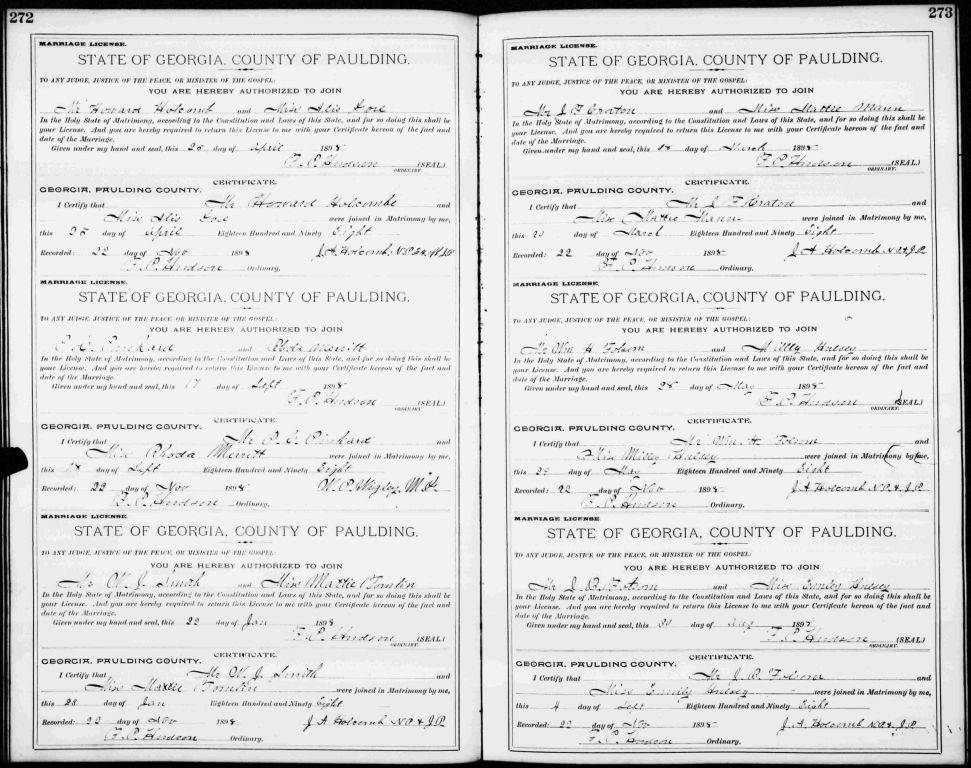 272
MARRIAGE LICENSE.
STATE OF GEORGIA, COUNTY OF PAULDING.
TO ANY JUDGE, JUSTICE OF THE PEACE, OR MINISTER OF THE GOSPEL:
YOU ARE HEREBY AUTHORIZED TO JOIN
Mr Howard Holcomb and Miss
In the Holy State of Matrimony, according to the Constitution and Laws of this State, and for so doing this shall be
your License. And you are hereby required to return this License to me with your Certificate hereon of the fact and
date of the Marriage.
Given under my hand and seal, this 25 day of April 1898
F. P. Hudson (SEAL)
ORDINARY.
CERTIFICATE.
GEORGIA, PAULDING COUNTY.
I Certify that Mr Howard Holcombe and
Miss were joined in Matrimony by me,
this 25 day of April Eighteen Hundred and Ninety Eight
Recorded: 22 day of Nov 1898 J. A. Holcomb
F. P. Hudson Ordinary.
MARRIAGE LICENSE.
STATE OF GEORGIA, COUNTY OF PAULDING.
TO ANY JUDGE, JUSTICE OF THE PEACE, OR MINISTER OF THE GOSPEL:
YOU ARE HEREBY AUTHORIZED TO JOIN
and Rhoda Merritt
In the Holy State of Matrimony, according to the Constitution and Laws of this State, and for so doing this shall be
your License. And you are hereby required to return this License to me with your Certificate hereon of the fact and
date of the Marriage.
Given under my hand and seal, this 17 day of Sept 1898
F. P. Hudson (SEAL)
ORDINARY.
CERTIFICATE.
GEORGIA, PAULDING COUNTY.
I Certify that Mr and
Miss Rhoda Merritt were joined in Matrimony by me,
this 18 day of Sept Eighteen Hundred and Ninety Eight
Recorded: 22 day of Nov 1898 W. P. Wigley M.G.
F. P. Hudson Ordinary.
MARRIAGE LICENSE.
STATE OF GEORGIA, COUNTY OF PAULDING.
TO ANY JUDGE, JUSTICE OF THE PEACE, OR MINISTER OF THE GOSPEL:
YOU ARE HEREBY AUTHORIZED TO JOIN
Mr W. J. Smith and Miss Mattie Tomlin
In the Holy State of Matrimony, according to the Constitution and Laws of this State, and for so doing this shall be
your License. And you are hereby required to return this License to me with your Certificate hereon of the fact and
date of the Marriage.
Given under my hand and seal, this 22 day of Jan 1898
F. P. Hudson (SEAL)
ORDINARY.
CERTIFICATE.
GEORGIA, PAULDING COUNTY.
I Certify that Mr W. J. Smith and
Miss Mattie Tomlin were joined in Matrimony by me,
this 23 day of Jan Eighteen Hundred and Ninety Eight
Recorded: 22 day of Nov 1898 J. A. Holcomb N.P. & J.P.
F. P. Hudson Ordinary.
273
MARRIAGE LICENSE.
STATE OF GEORGIA, COUNTY OF PAULDING.
TO ANY JUDGE, JUSTICE OF THE PEACE, OR MINISTER OF THE GOSPEL:
YOU ARE HEREBY AUTHORIZED TO JOIN
Mr J. F. Craton and Miss Mattie Mann
In the Holy State of Matrimony, according to the Constitution and Laws of this State, and for so doing this shall be
your License. And you are hereby required to return this License to me with your Certificate hereon of the fact and
date of the Marriage.
Given under my hand and seal, this 18 day of March 1898
F. P. Hudson (SEAL)
ORDINARY.
CERTIFICATE.
GEORGIA, PAULDING COUNTY.
I Certify that Mr J. F. Craton and
Miss Mattie Mann were joined in Matrimony by me,
this 20 day of March Eighteen Hundred and Ninety Eight
Recorded: 22 day of Nov 1898 J. A. Holcomb N.P. & J.P.
F. P. Hudson Ordinary.
MARRIAGE LICENSE.
STATE OF GEORGIA, COUNTY OF PAULDING.
TO ANY JUDGE, JUSTICE OF THE PEACE, OR MINISTER OF THE GOSPEL:
YOU ARE HEREBY AUTHORIZED TO JOIN
Mr Wm H. Folsom and Hulsey
In the Holy State of Matrimony, according to the Constitution and Laws of this State, and for so doing this shall be
your License. And you are hereby required to return this License to me with your Certificate hereon of the fact and
date of the Marriage.
Given under my hand and seal, this 28 day of May 1898
F. P. Hudson (SEAL)
ORDINARY.
CERTIFICATE.
GEORGIA, PAULDING COUNTY.
I Certify that Mr Wm H. Folsom and
Miss Hulsey were joined in Matrimony by me,
this 29 day of May Eighteen Hundred and Ninety Eight
Recorded: 22 day of Nov 1898 J. A. Holcomb N.P. & J.P.
F. P. Hudson Ordinary.
MARRIAGE LICENSE
STATE OF GEORGIA, COUNTY OF PAULDING.
TO ANY JUDGE, JUSTICE OF THE PEACE, OR MINISTER OF THE GOSPEL:
YOU ARE HEREBY AUTHORIZED TO JOIN
Mr J. and Miss Emily Hulsey
In the Holy State of Matrimony, according to the Constitution and Laws of this State, and for so doing this shall be
your License. And you are hereby required to return this License to me with your Certificate hereon of the fact and
date of the Marriage.
Given under my hand and seal, this day of Aug 1898
F. P. Hudson (SEAL)
ORDINARY.
CERTIFICATE.
GEORGIA, PAULDING COUNTY.
I Certify that Mr J. and
Miss Emily Hulsey were joined in Matrimony by me,
this 4 day of Sept Eighteen Hundred and Ninety Eight
Recorded: 22 day of Nov 1898 J. A. Holcomb N.P. & J.P.
F. P. Hudson Ordinary.